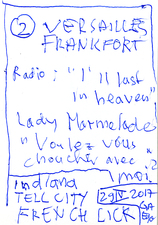 ② VERSAILLES
FRANKFORT
Radio: "I'll last
in heaven"
Lady Marmelade
"Voulez vous
choucher avec
moi..?
indiana
TELL CITY
FRENCH LICK
29 IV 2017